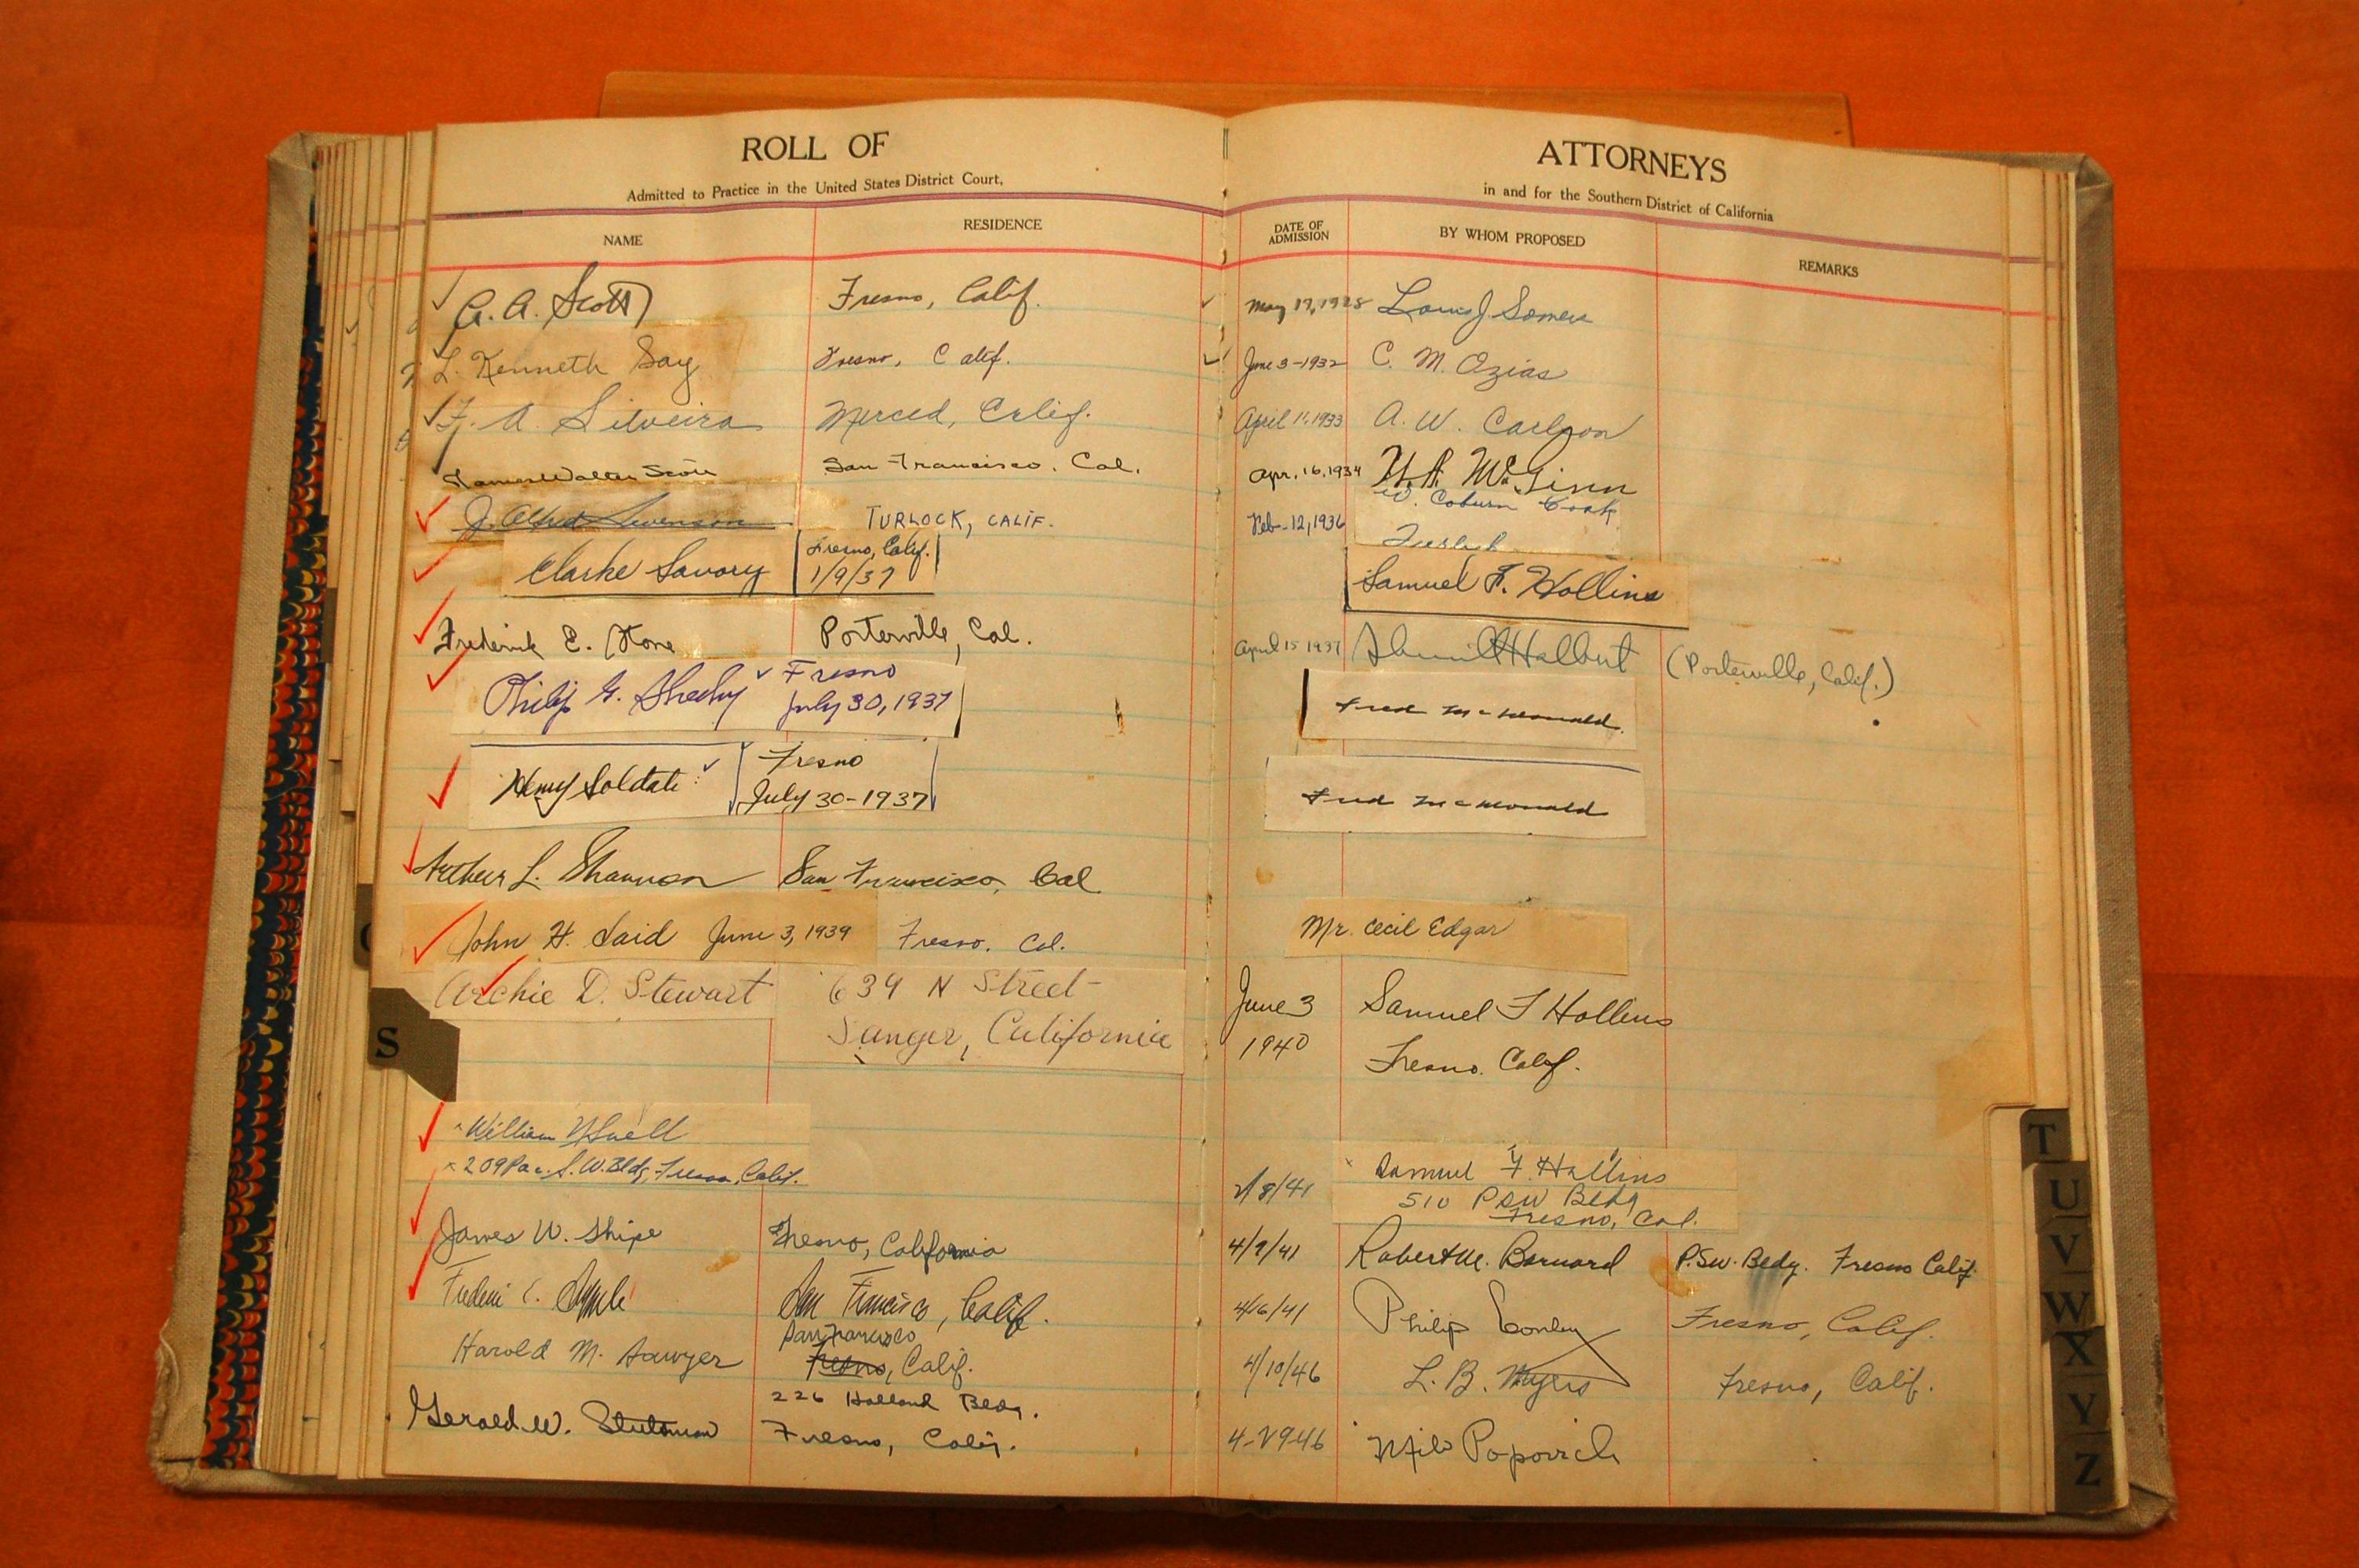 ROLL OF
ATTORNEYS
Admitted to Practice in the United States District Court,
in and for the Southern District of California
NAME
RESIDENCE
DATE OF
ADMISSION
BY WHOM PROPOSED
REMARKS
A. Scott Fresno, Calif. May 17, 1928 Louis J. Somers
L. Kenneth Say Fresno, Calif. June 3-1932 C. M. Ozias
F. A. Silveira Merced, Calif. April 11, 1933 A. W. Carlson
James Walter Scott San Francisco. Cal. Apr. 16, 1934 McGinn
J. Alfred Swenson TURLOCK, CALIF. Feb-12, 1936 W. Coburn Cook
Turlock
Clarke Savory Fresno, Calif.
1/9/37 Samuel F. Hollins
Frederick E. Stone Porterville, Cal. April 15 1937 Halbert (Porterville, Calif.)
Philip G. Sheehy Fresno
July 30, 1937 Fred McDonald.
Henry Soldati Fresno
July 30-1937 Fred McDonald
Arthur L. Shannon San Francisco, Cal
John H. Said June 3, 1939 Fresno. Cal. Mr. Cecil Edgar
Archie D. Stewart 639 N Street June 3 Samuel F Hollins
Sanger, California 1940 Fresno. Calif.
William Snell
209 Pac. S. W. Bldg, Fresno, Calif. Samuel F. Hollins
/8/41 510 PSW Bldg
Fresno, Cal.
James W. Shipe Fresno, California 4/9/41 Robert M. Barnard P.SW. Bldg. Fresno Calif
San Francisco, Calif. 4/16/41 Philip Conley Fresno, Calif.
San Francisco
Harold M. Sawyer Fresno, Calif. 4/10/46 L. B. Myers Fresno, Calif.
226 Holland Bldg.
Gerald W. Stutsman Fresno, Calif. 4-29-46 Milo Popovich
S
T
U
V
W
X
Y
Z